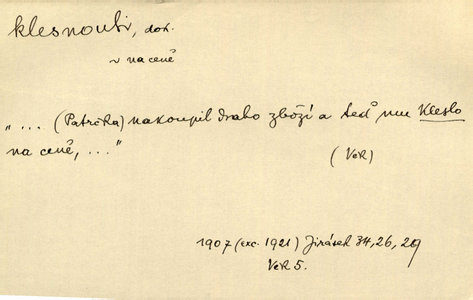 klesnouti, dok.
~ na ceně
„... (Patrčka) nakoupil draho zboží a teď mu kleslo
na ceně, ..."
(Věk)
1907 (exc. 1921) Jirásek 34, 26, 29
Věk 5.